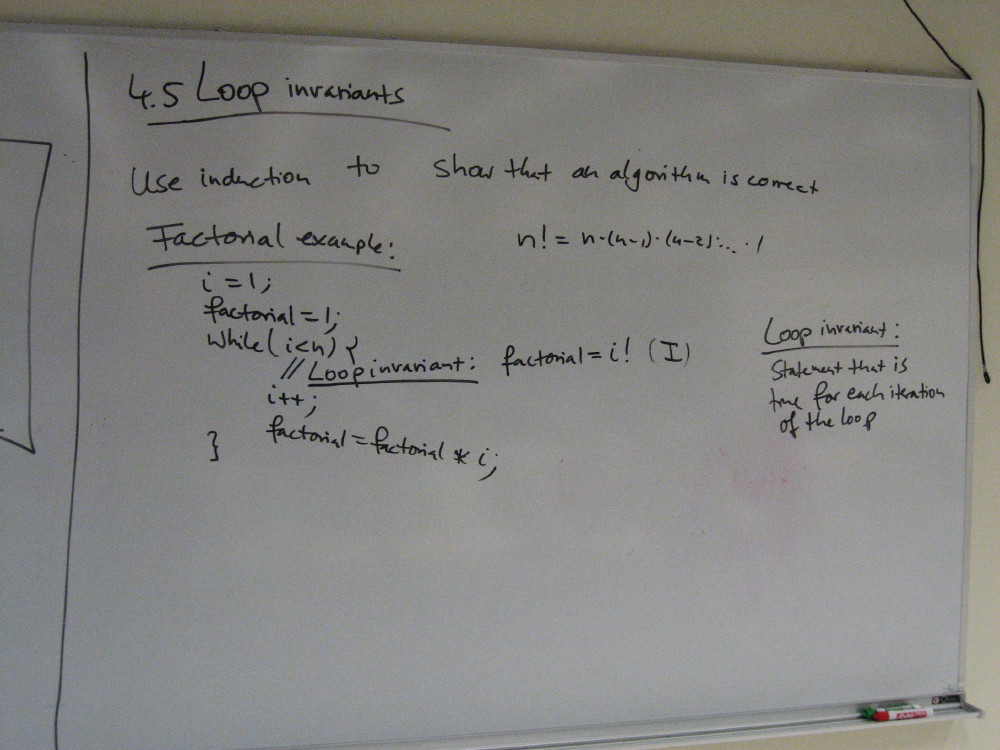 4.5 Loop invariants
Use induction to show that an algorithm is correct
Factorial example:
n! = n·(n-1)·(n-2)·...·1
i = 1;
factorial = 1;
while (i<n) {
// Loop invariant: factorial = i! (I)
i++;
factorial = factorial * i;
}
Loop invariant:
Statement that is
true for each iteration
of the loop